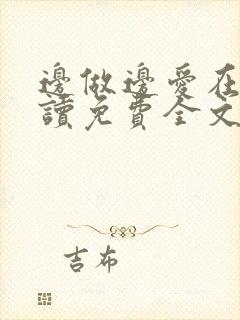 邊做邊愛在
讀免費全文
吉布